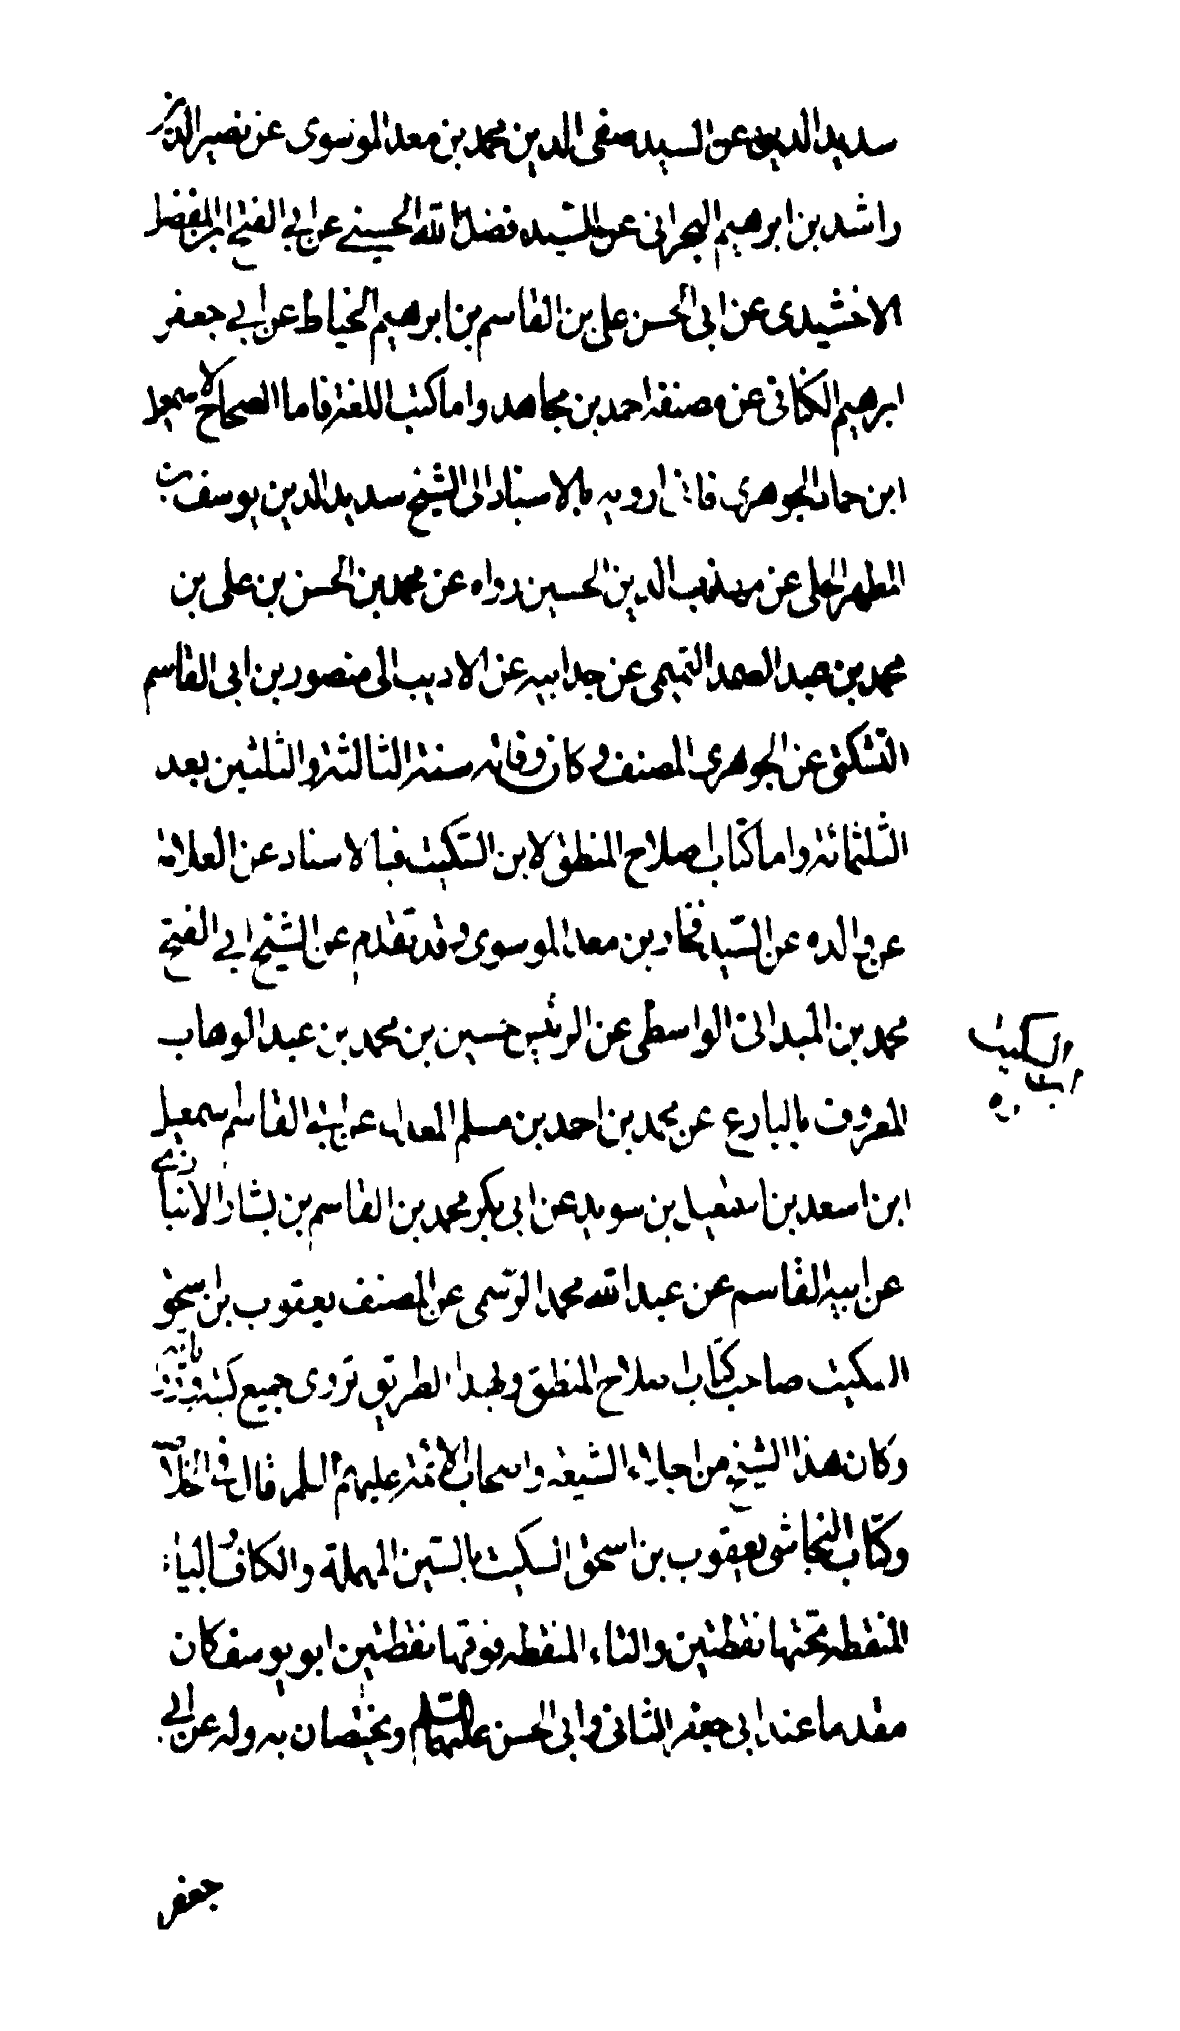 سديد الدين عن السيد صفى الدين محمد بن معد الموسوى عن نصير الدين
راشد بن ابرهيم البحرانى عن السيد فضل الله الحسينى عن ابى الفتح ابن الفضل
الاخشيدى عن ابى الحسن على بن القاسم بن ابرهيم الخياط عن ابى جعفر
ابرهيم الكنانى عن مصنفه احمد بن مجاهد واما كتب اللغة فاما الصحاح لاسمعيل
ابن حماد الجوهرى فانى ارويه بالاسناد الى الشيخ سديد الدين يوسف بن
المطهر الحلى عن مهذب الدين الحسين رواه عن محمد بن الحسن بن على بن
محمد بن عبد الصمد التميمى عن جد ابيه عن الاديب الى منصور بن ابى القاسم
عن الجوهرى المصنف وكان وفاته سنة الثالثة والثلثين بعد
الثلثمائة واما كتاب اصلاح المنطق لابن السكيت فبالاسناد عن العلامة
عن والده عن السيد فخار بن معد الموسوى وقد تقدم عن الشيخ ابى الفتح
محمد بن الميدانى الواسطى عن الرئيس حسين بن محمد بن عبد الوهاب
المعروف بالبارع عن محمد بن احمد بن مسلم المعدل عن ابى القاسم سمعيل
ابن اسعد بن اسمعيل بن سويد عن ابى بكر محمد بن القاسم بن بشار الانبارى
عن ابيه القاسم عن عبد الله محمد الرستمى عن المصنف يعقوب بن اسحق
السكيت صاحب كتاب اصلاح المنطق وبهذا الطريق نروى جميع كتبه
وكان هذا الشيخ من اجلاء الشيعة واصحاب الائمة عليهم السلم قال فى الخلاصة
وكتاب النجاشى يعقوب بن اسحق السكيت بالسين المهملة والكاف والياء
المنقطه تحتها نقطتين والتاء المنقطه فوقها نقطتين ابو يوسف كان
مقدما عند ابى جعفر الثانى وابى الحسن عليهما السلم ويختصان به وله عن ابى
جعفر
السكيت